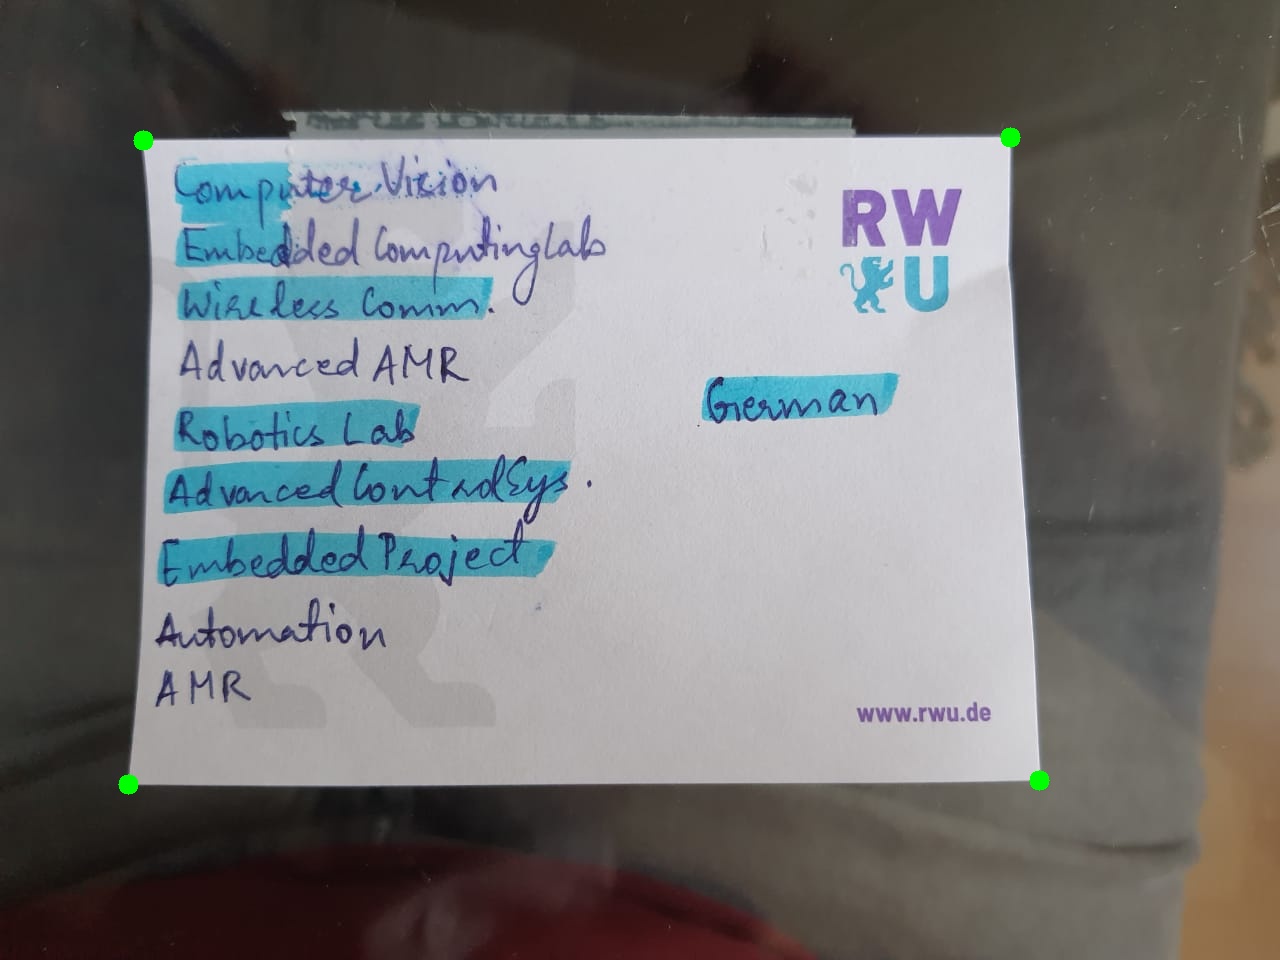 Computer Vision
Embedded Computing Lab
Wireless Comm.
Advanced AMR
Robotics Lab
Advanced Control Sys.
Embedded Project
Automation
AMR
RW
U
German
www.rwu.de